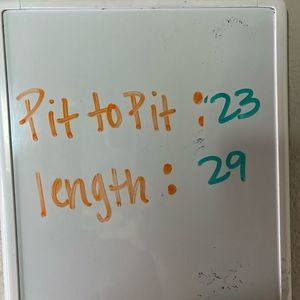 Pit to Pit : 23
length : 29